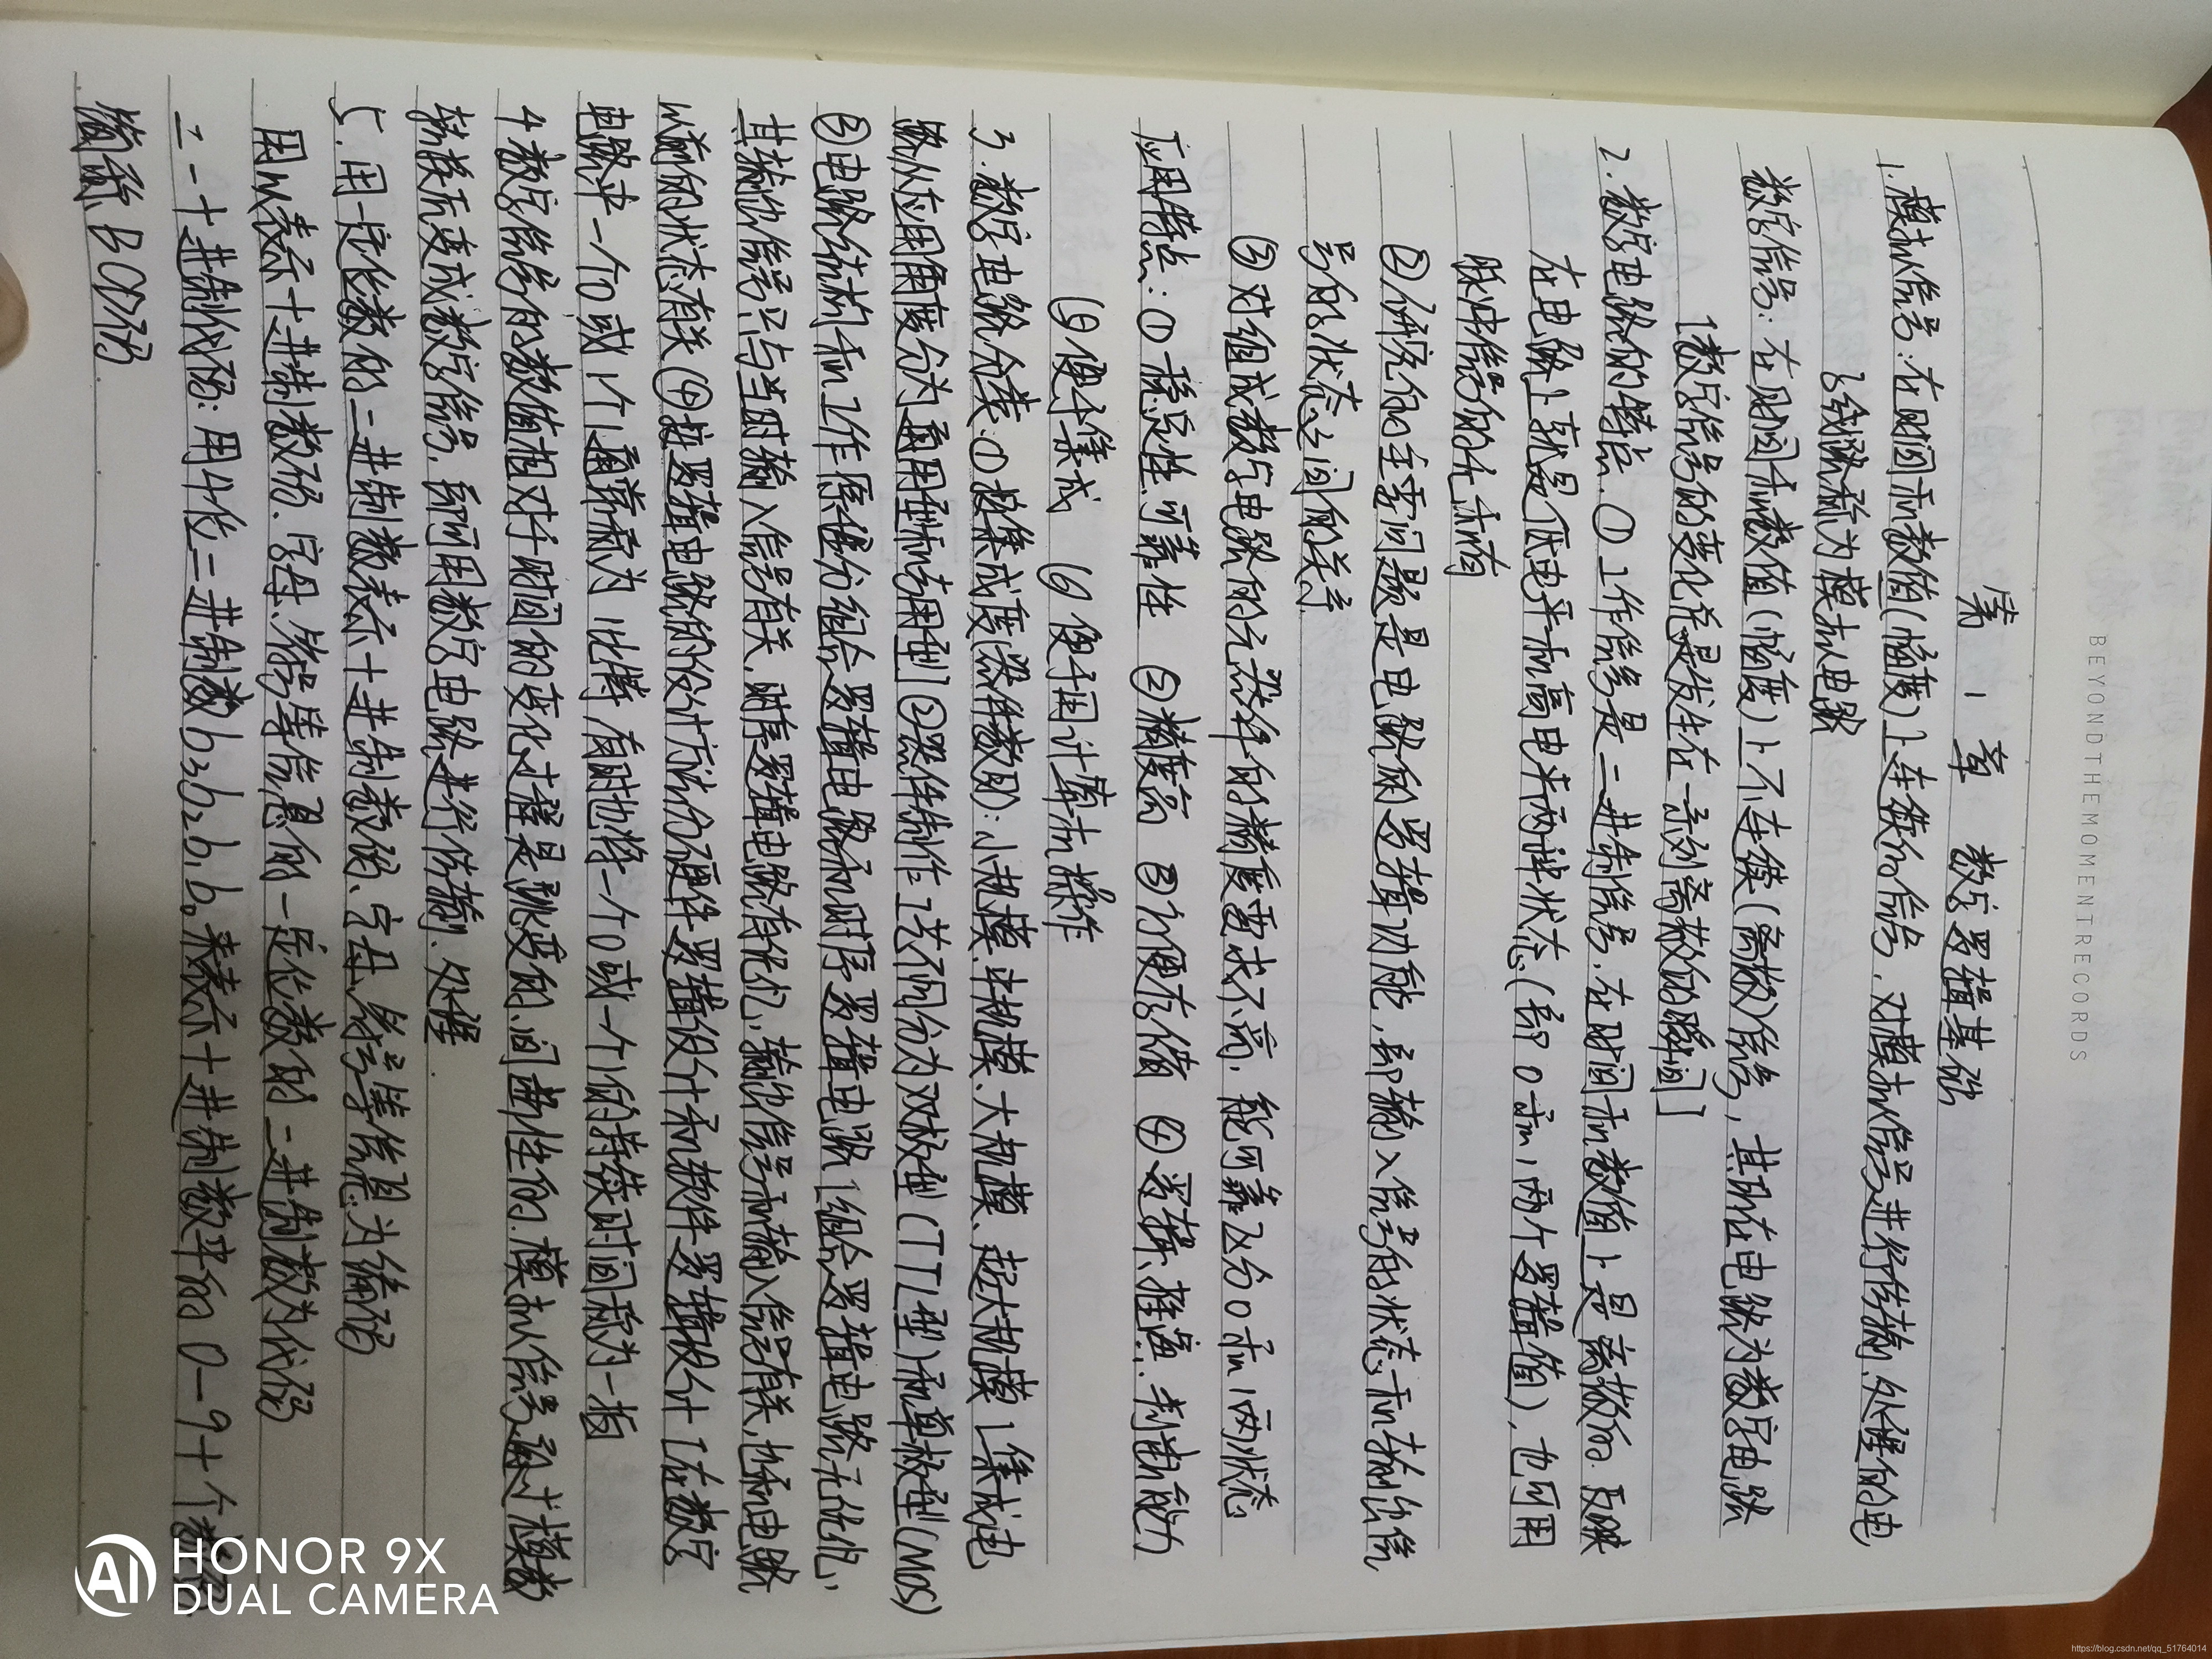 BEYONDTHEMOMENTRECORDS
第 1 章 数字逻辑基础
1.模拟信号:在时间和数值(幅度)上连续的信号,对模拟信号进行传输、处理的电
子线路称为模拟电路
数字信号:在时间和数值(幅度)上不连续(离散)信号,其所在电路为数字电路
[数字信号的变化总是发生在一系列离散的瞬间]
2.数字电路的特点.①工作信号是二进制信号,在时间和数值上是离散的.反映
在电路上就是低电平和高电平两种状态(即0和1两个逻辑值),也可用
脉冲信号的无和有
②研究的主要问题是电路的逻辑功能,即输入信号的状态和输出信
号的状态之间的关系
③对组成数字电路的元器件的精度要求不高,能可靠区分0和1两状态
应用特点:①稳定性可靠性 ②精度高 ③方便存储 ④逻辑、推演、判断能力
⑤便于集成 ⑥便于用计算机操作
3.数字电路分类:①按集成度(器件数目):小规模、中规模、大规模、超大规模[集成电
路从应用角度分为通用型和专用型]②器件制作工艺不同分为双极型(TTL型)和单极型(MOS)
③电路结构和工作原理分组合逻辑电路和时序逻辑电路[组合逻辑电路无记忆,
其输出信号只与当时输入信号有关.时序逻辑电路有记忆,输出信号和输入信号有关,也和电路
以前的状态有关④按逻辑电路的设计方法分硬件逻辑设计和软件逻辑设计[在数字
电路中一个0或1个1通常称为1比特 有时也将一个0或一个1的持续时间称为一拍
4数字信号的数值相对于时间的变化过程是跳变的、间断性的.模拟信号通过模数
转换后变成数字信号,即可用数字电路进行传输、处理.
5.用一定位数的二进制数表示十进制数码、字母、符号等信息为编码
用以表示十进制数码、字母、符号等信息的一定位数的二进制数为代码
二-十进制代码:用4位二进制数b3b2b1b0来表示十进制数中的0-9十个数码.
简称BCD码
HONOR 9X
DUAL CAMERA
https://blog.csdn.net/qq_51764014